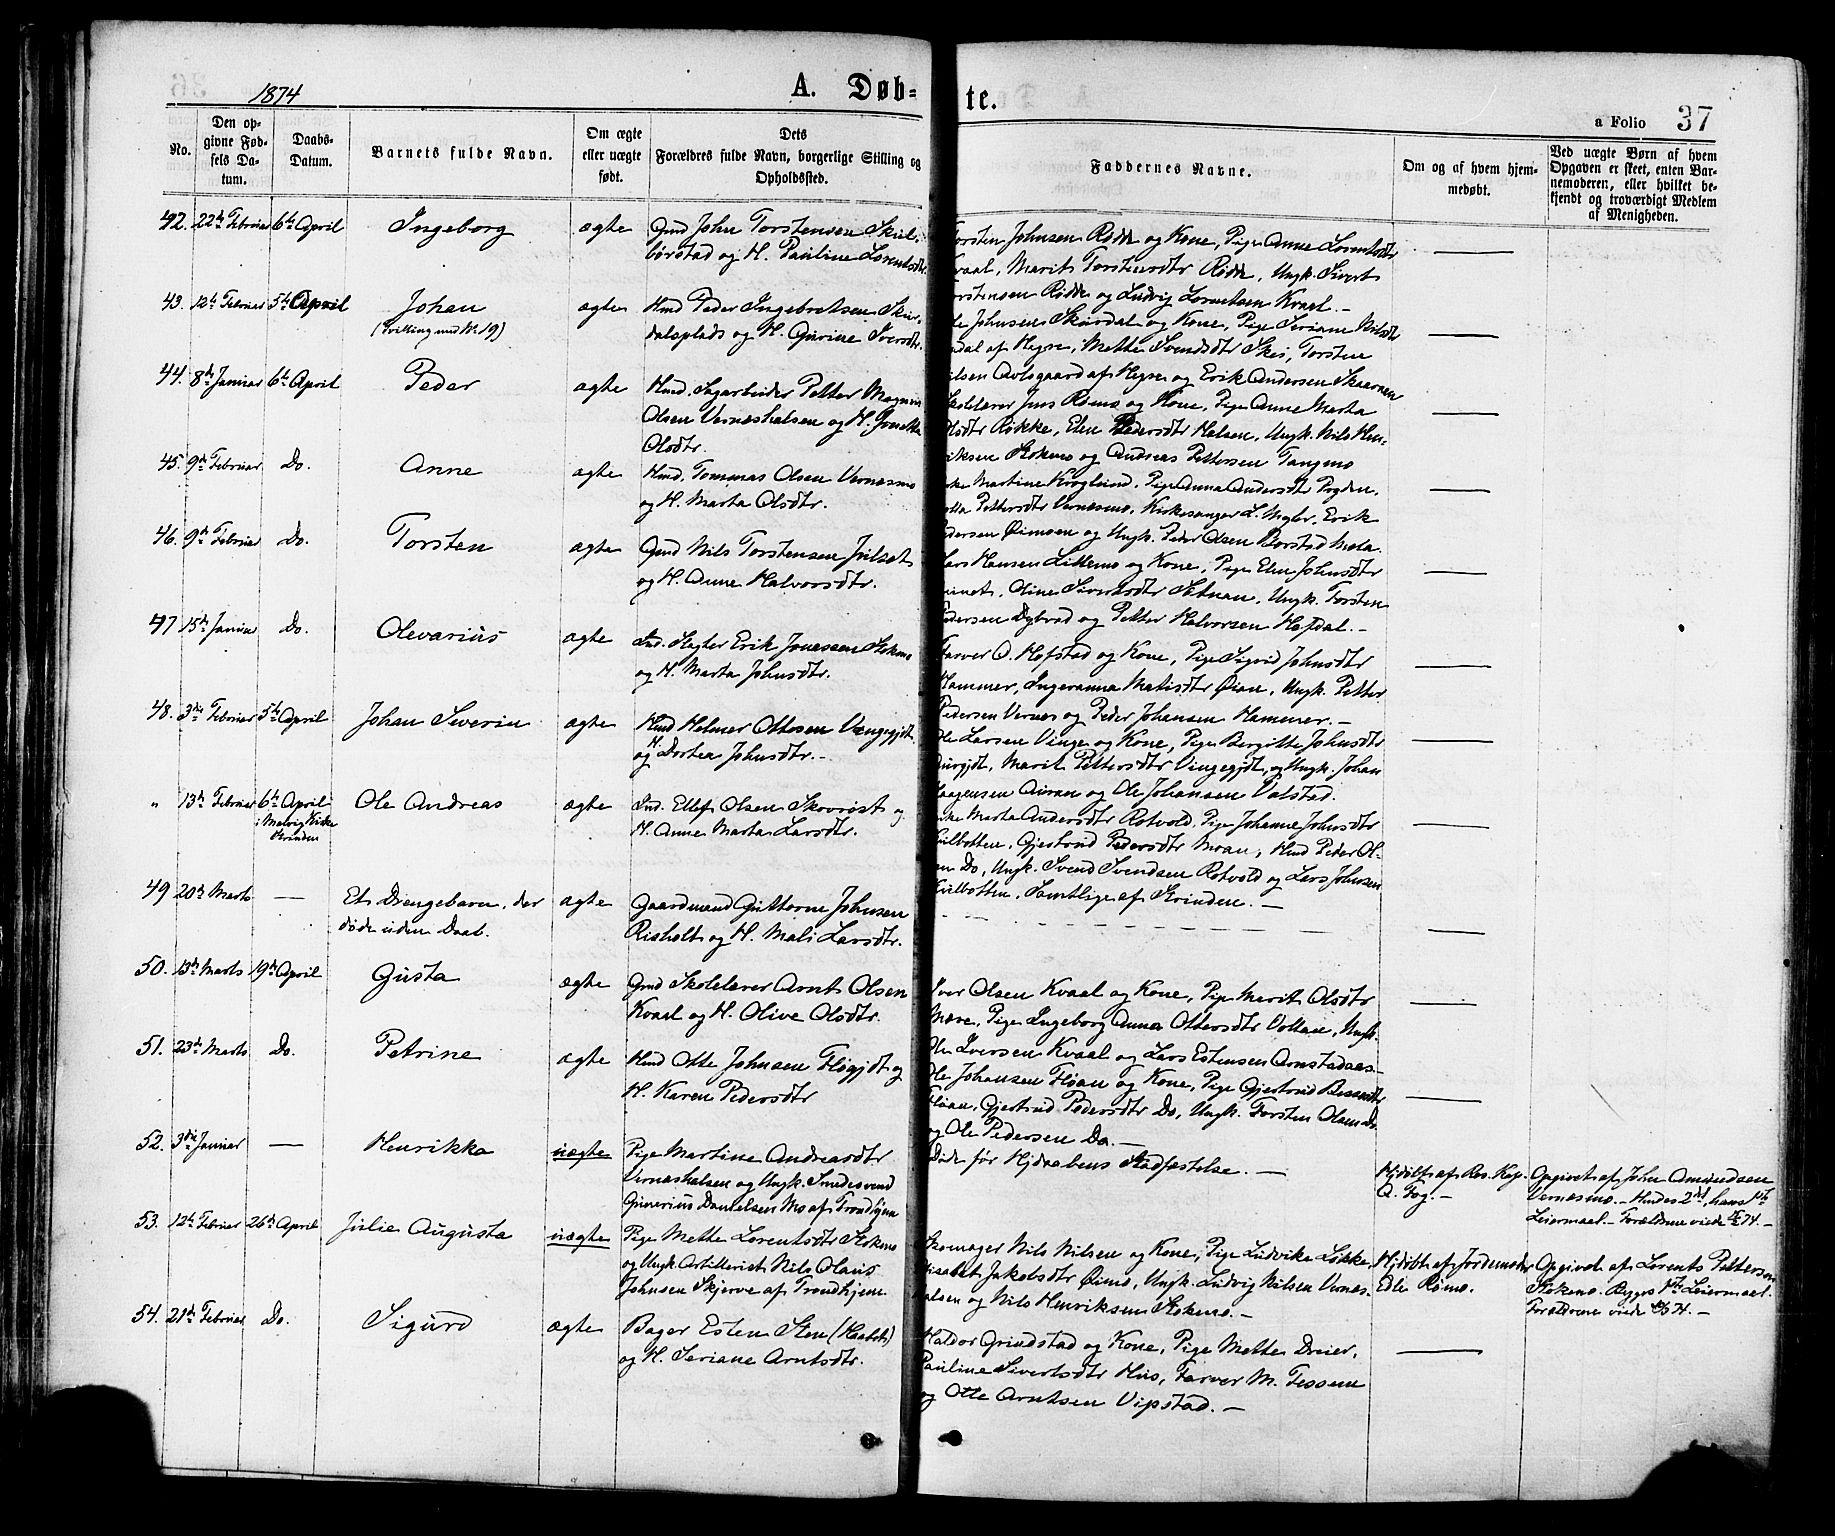 1874
A. Døb-
te.
a Folio 37
No.
Den op-
givne Fød-
sels Da-
tum.
Daabs-
Datum.
Barnets fulde Navn.
Om ægte
eller uægte
født.
Dets
Forældres fulde Navn, borgerlige Stilling og
Opholdssted.
Faddernes Navne.
Om og af hvem hjem-
medøbt.
Ved uægte Børn af hvem
Opgaven er skeet, enten Bar-
nemoderen, eller hvilket be-
kjendt og troværdigt Medlem
af Menigheden.
42. 22de Februar 6te April Ingeborg ægte Gmd John Torstensen Skjel-
børstad og H. Pauline Lorentsdtr.
Torsten Johnsen Rødde og Kone, Pige Anne Lorentsdtr
Kvaal, Marit Torstensdtr Rødde, Ungk. Sivert
Torstensen Rødde og Ludvig Lorentsen Kvaal.—
43. 12te Februar 5te April Johan ægte Hmd Peder Ingebretsen Skjer-
(Tvilling med No. 19)
dalsplads og H. Gurine Iversdtr.
Ole Johnsen Skjerdal og Kone, Pige Seriane Nilsdtr
dal af Hegre, Mette Svendsdtr Skei, Torsten
Nilsen Avlsgaard af Hegre og Erik Andersen
44. 8de Januar 6te April Peder ægte Hmd. Sagarbeider Petter Magnus
Olsen Vernæshalsen og H. Jonetta
Olsdtr.
Skolelærer Jens Rømo og Kone, Pige Anne Marta
Olsdtr Røkke, Elen Pedersdtr Halsen, Ungk. Nils Hen-
riksen Stokmo og Andreas Pettersen Tangmo
45. 9de Februar Do. Anne ægte Hmd. Tommas Olsen Vernæsmo
og H. Marta Olsdtr.
Martine Kroglund, Pige Anna Andersdtr
Pettersdtr Vernæsmo, Kirkesanger L. Mogler, Erik
Pedersen Øimoen og Ungk. Peder Olsen Borstad
46. 9de Februar Do. Torsten ægte Gmd Nils Torstensen Julset
og H. Anne Halvorsdtr.
Lars Hansen Littlemo og Kone, Pige Elen Johnsdtr
Oline Sivertsdtr Setnan, Ungk. Torsten
Pedersen Dybvad og Petter Halvorsen Hofdal.—
47 15de Januar Do. Olevarius ægte Ind. Slagter Erik Jonassen Stokmo
og H. Marta Johnsdtr.
Farver O. Hofstad og Kone, Pige Sigrid Johnsdtr
Hammer, Ingeranna Matisdtr Øian, Ungk. Petter
Pedersen Vernes og Peder Johansen Hammer.—
48. 3die Februar 5te April Johan Severin ægte Hmd Helmer Ottesen Vengegjdt.
og H. Dortea Johnsdtr.—
Ole Larsen Vinge og Kone, Pige Bergitte Johnsdtr
Marit Pettersdtr Vingegjdt, og Ungk. Johan
Haagensen Auran og Ole Johansen Valstad.
" 13de Februar 6te April Ole Andreas ægte Ind. Ellef Olsen Skovrøst og
i Malvig Kirke
Strinden
H. Anne Marta Larsdtr.
Marta Andersdtr Rotvold, Pige Johanne Johnsdtr
Gjertrud Pedersdtr Moan, Hmd Peder Ol-
sen Do, Ungk. Svend Svendsen Rotvold og Lars Johnsen
Samtlige af Strinden.—
49 20de Marts — Et Drengebarn, der
døde uden Daab.
ægte Gaardmand Guttorm Johnsen
Risholt og H. Mali Larsdtr.
50. 13de Marts 19de April Gusta ægte Gmd Skolelærer Arnt Olsen
Kvaal og H. Olive Olsdtr.
Iver Olsen Kvaal og Kone, Pige Marit Olsdtr
Mære, Pige Ingeborg Anna Ottersdtr Vollan, Ungk.
Ole Iversen Kvaal og Lars Estensen Arnstadaas—
51. 23de Marts Do. Petrine ægte Hmd Otte Johnsen Fløgjdt og
H. Karen Pedersdtr
Ole Johansen Fløan og Kone, Pige Gjertrud
Fløan, Gjertrud Pedersdtr Do, Ungk. Torsten Olsen Do.
og Ole Pedersen Do.—
52. 3die Januar — Henrikka uægte Pige Martine Andreasdtr
Vernæshalsen og Ungk. Smedesvend
Gunerius Danielsen Mo af Trondhjem
Døde før Hjdaabens Stadfæstelse.—
Hjdøbt af Res. Kap.
O. Fog.—
Opgivet af John Amundsen
Vernæsmo.— Hindes 2det, hans 1ste
Leiermaal.— Forældrene viede 74.—
53. 12te Februar 26de April Julie Augusta uægte Pige Mette Lorentsdtr Stokmo
og Ungk. Artillerist Nils Olaus
Johnsen Skjerve af Trondhjem
Skomager Nils Nilsen og Kone, Pige Ludvike Løkke,
Elisabet Jakobsdtr Øimo, Ungk. Ludvig Nilsen Vernæs-
halsen og Nils Henriksen Stokmo.—
Hjdøbt af Jordemoder
Edle Rømo.
Opgivet af Lorents Pettersen
Stokmo. Begges 1ste Leiermaal.
Forældrene viede 74.—
54. 21de Februar Do. Sigurd ægte Bager Esten Sten (Haabet)
og H. Seriane Arntsdtr.
Haldor Grindstad og Kone, Pige Mette Dreier,
Pauline Sivertsdtr Hus, Farver M. Tessem
og Otte Arntsen Vipstad.—